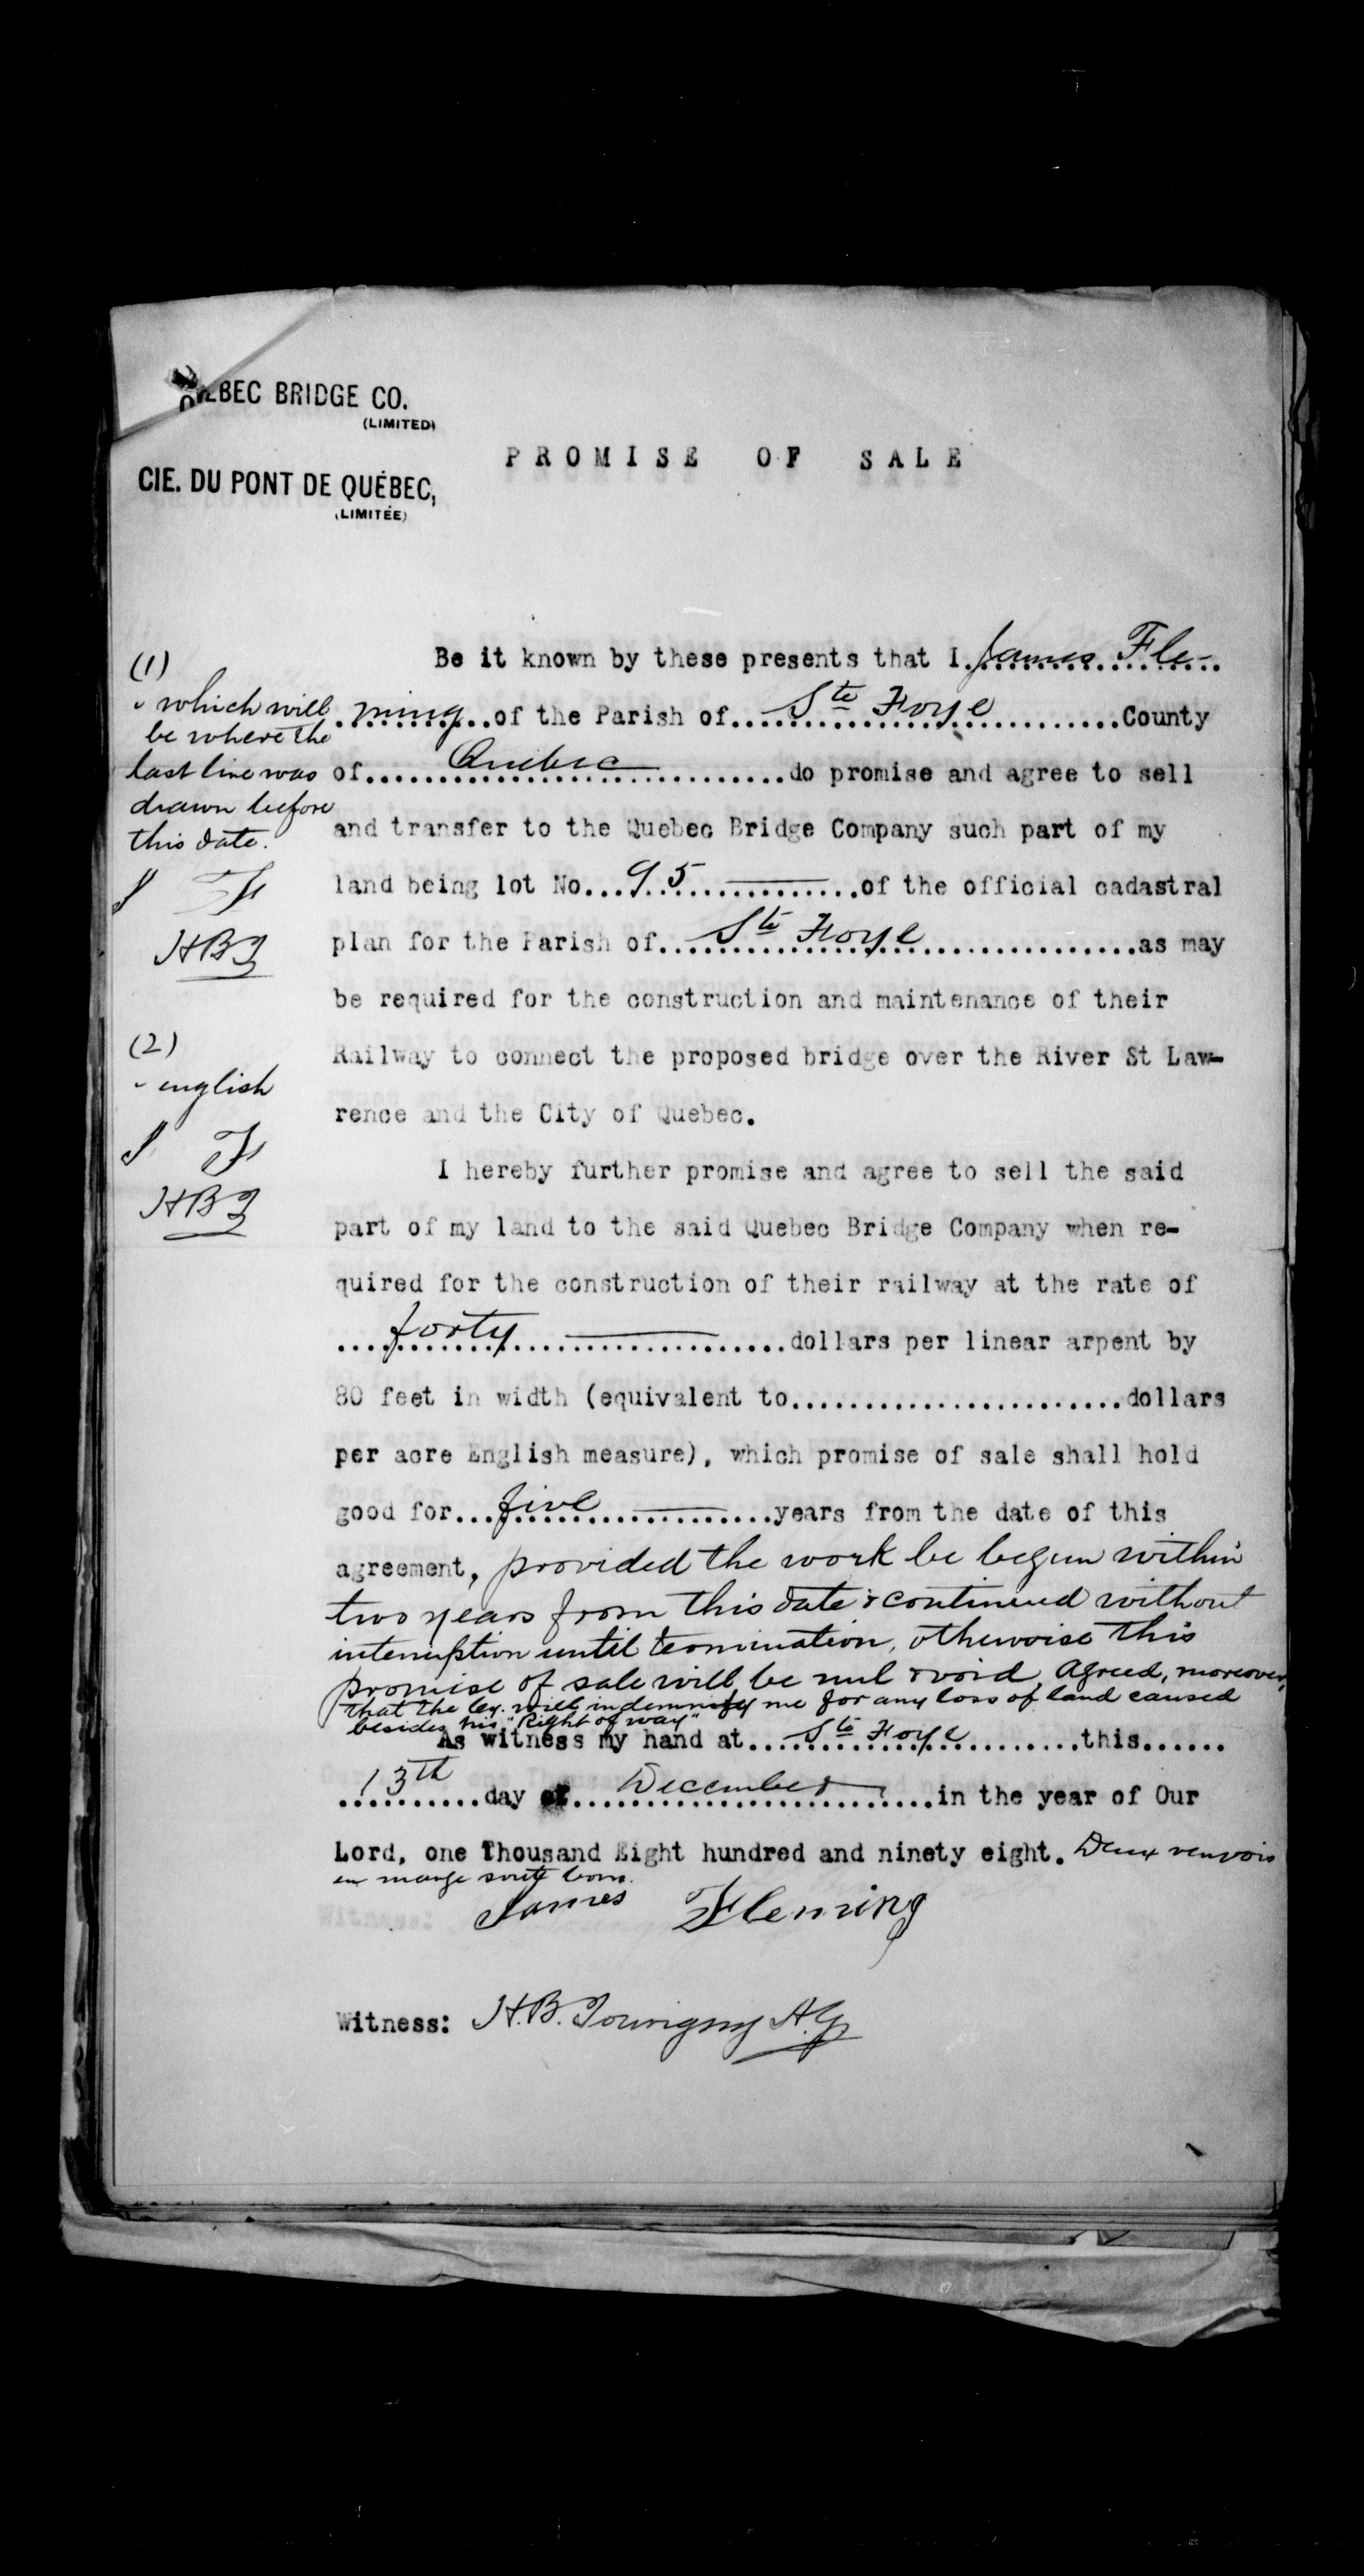 QUEBEC BRIDGE CO.
(LIMITED)
CIE. DU PONT DE QUÉBEC,
(LIMITÉE)
PROMISE OF SALE
Be it known by these presents that I. James Fle-
ming of the Parish of Ste Foye County
of Quebec do promise and agree to sell
and transfer to the Quebec Bridge Company such part of my
land being lot No. 95 of the official cadastral
plan for the Parish of Ste Foye as may
be required for the construction and maintenance of their
Railway to connect the proposed bridge over the River St Law-
rence and the City of Quebec.
I hereby further promise and agree to sell the said
part of my land to the said Quebec Bridge Company when re-
quired for the construction of their railway at the rate of
forty dollars per linear arpent by
80 feet in width (equivalent to........................dollars
per acre English measure), which promise of sale shall hold
good for five years from the date of this
agreement, provided the work be begun within
two years from this date & continued without
interruption until termination, otherwise this
promise of sale will be nul & void. Agreed, moreover,
that the Coy. will indemnify me for any loss of land caused
besides his "Right of way"
As witness my hand at Ste Foye this......
13th day of December in the year of Our
Lord, one Thousand Eight hundred and ninety eight. Deux renvois
en marge sont bons.
James Fleming
Witness:
Witness: H.B. A.G.
(1)
which will
be where the
last line was
drawn before
this date.
J F
HBT
(2)
english
J F
HBT